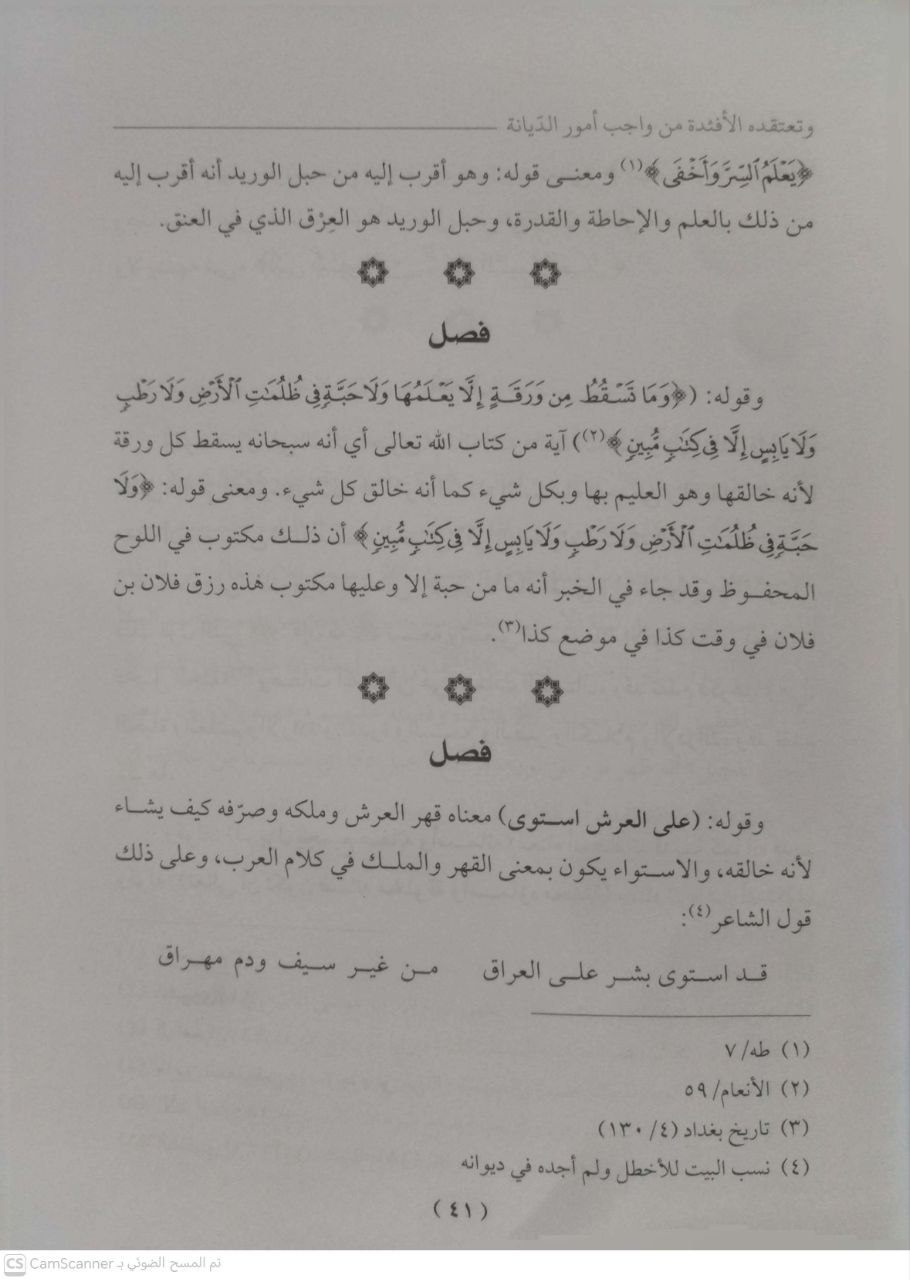 وتعتقده الأفئدة من واجب أمور الدّيانة
﴿يَعْلَمُ ٱلسِّرَّ وَأَخْفَى﴾(١) ومعنى قوله: وهو أقرب إليه من حبل الوريد أنه أقرب إليه
من ذلك بالعلم والإحاطة والقدرة، وحبل الوريد هو العِرْق الذي في العنق.
فصل
وقوله: (﴿وَمَا تَسْقُطُ مِن وَرَقَةٍ إِلَّا يَعْلَمُهَا وَلَا حَبَّةٍ فِى ظُلُمَٰتِ ٱلْأَرْضِ وَلَا رَطْبٍ
وَلَا يَابِسٍ إِلَّا فِى كِتَٰبٍ مُّبِينٍ﴾(٢)) آية من كتاب الله تعالى أي أنه سبحانه يسقط كل ورقة
لأنه خالقها وهو العليم بها وبكل شيء كما أنه خالق كل شيء. ومعنى قوله: ﴿وَلَا
حَبَّةٍ فِى ظُلُمَٰتِ ٱلْأَرْضِ وَلَا رَطْبٍ وَلَا يَابِسٍ إِلَّا فِى كِتَٰبٍ مُّبِينٍ﴾ أن ذلك مكتوب في اللوح
المحفوظ وقد جاء في الخبر أنه ما من حبة إلا وعليها مكتوب هذه رزق فلان بن
فلان في وقت كذا في موضع كذا(٣).
فصل
وقوله: (على العرش استوى) معناه قهر العرش وملكه وصرّفه كيف يشاء
لأنه خالقه، والاستواء يكون بمعنى القهر والملك في كلام العرب، وعلى ذلك
قول الشاعر(٤):
قد استوى بشر على العراق من غير سيف ودم مهراق
(١) طه/ ٧
(٢) الأنعام/ ٥٩
(٣) تاريخ بغداد (٤/ ١٣٠)
(٤) نسب البيت للأخطل ولم أجده في ديوانه
(٤١)
CS CamScanner تم المسح الضوئي بـ